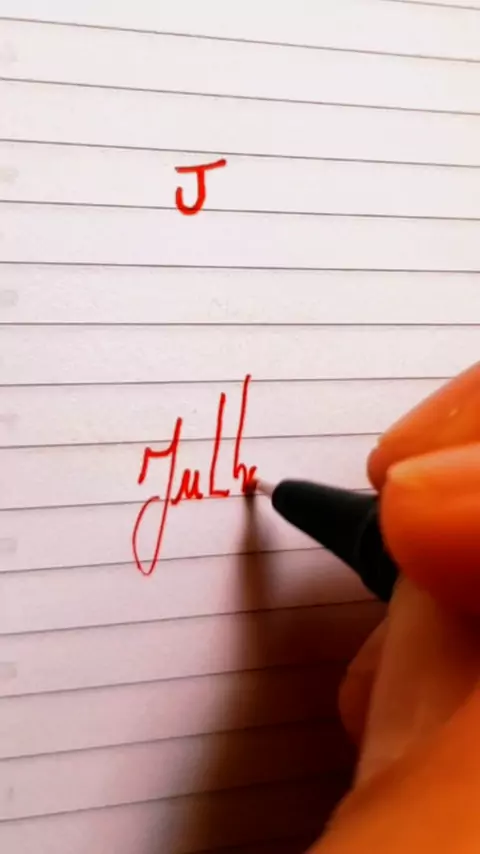 J
Julh